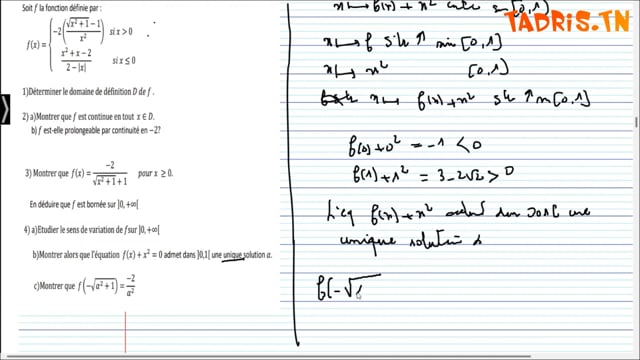 Soit f la fonction définie par :
f(x) = { -2 ( (√(x²+1) - 1) / x² ) si x > 0
(x² + x - 2) / (2 - |x|) si x ≤ 0
1)Déterminer le domaine de définition D de f .
2) a)Montrer que f est continue en tout x ∈ D.
b) f est-elle prolongeable par continuité en −2?
3) Montrer que f(x) = -2 / (√(x²+1) + 1) pour x ≥ 0.
En déduire que f est bornée sur ]0, +∞[
4) a)Etudier le sens de variation de f sur ]0, +∞[
b)Montrer alors que l'équation f(x) + x² = 0 admet dans ]0,1[ une unique solution a.
c)Montrer que f(-√(a²+1)) = -2 / a²
TADRIS.TN
x ⟼ f(x) + x² sur [0,1]
x ⟼ f st ↑ [0,1]
x ⟼ x² [0,1]
x ⟼ f(x) + x² st ↑ [0,1]
f(0) + 0² = -1 < 0
f(1) + 1² = 3 - 2√2 > 0
L'eq f(x) + x² admet dans ]0,1[ une
unique solution
f(-√1